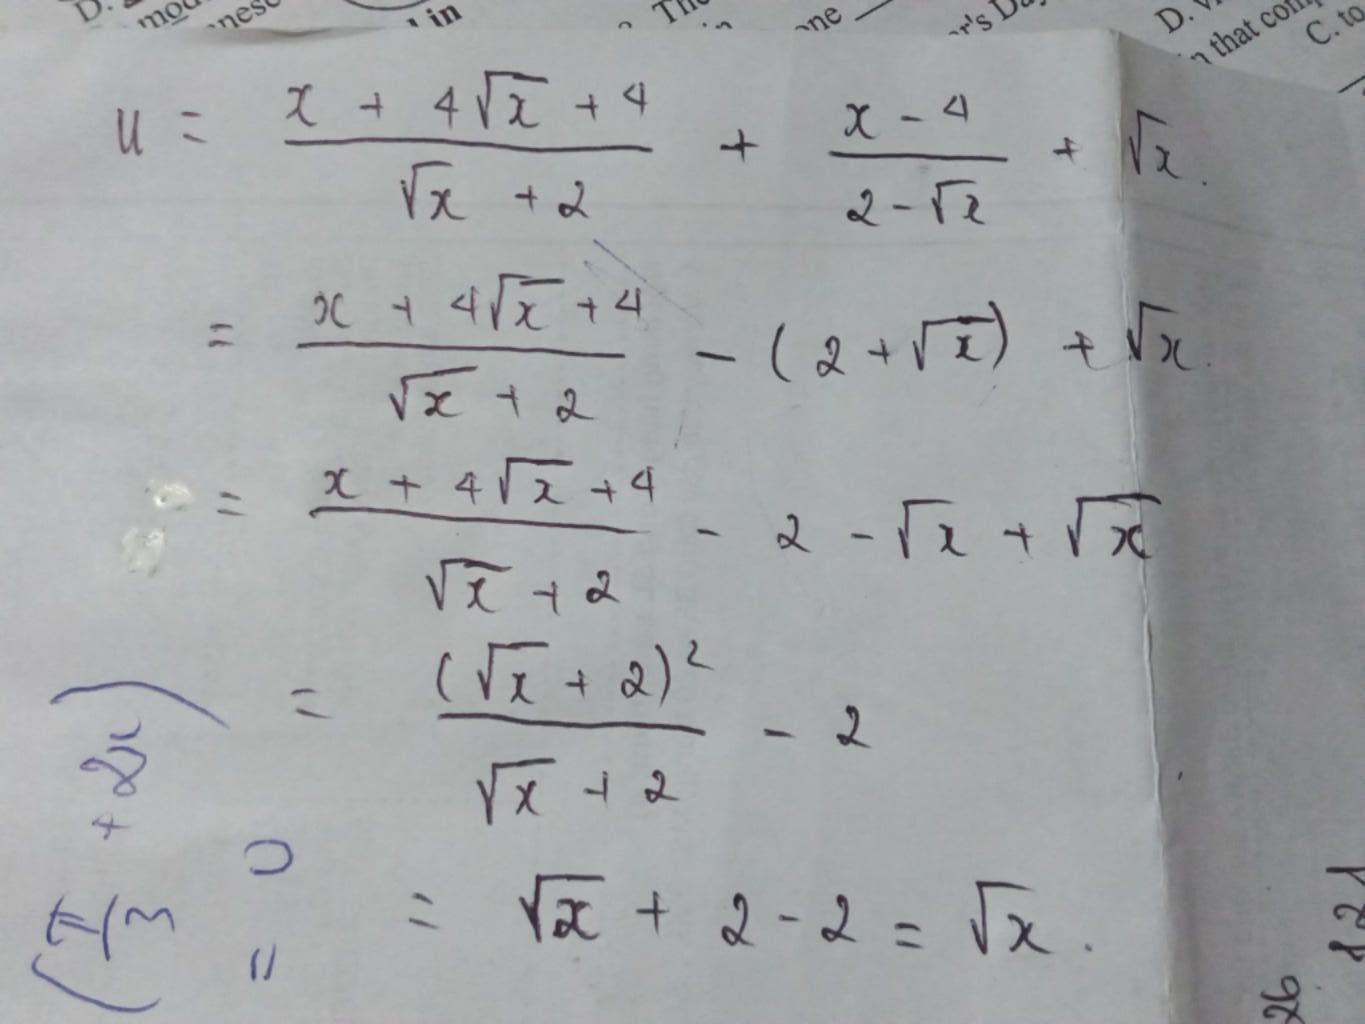 D.
mod
nese
l in
The
one
r's Da
D. V
n that com
C. to
U = \frac{x + 4\sqrt{x} + 4}{\sqrt{x} + 2} + \frac{x - 4}{2 - \sqrt{x}} + \sqrt{x}.
= \frac{x + 4\sqrt{x} + 4}{\sqrt{x} + 2} - (2 + \sqrt{x}) + \sqrt{x}.
= \frac{x + 4\sqrt{x} + 4}{\sqrt{x} + 2} - 2 - \sqrt{x} + \sqrt{x}
= \frac{(\sqrt{x} + 2)^2}{\sqrt{x} + 2} - 2
= \sqrt{x} + 2 - 2 = \sqrt{x}.
(\frac{\pi}{3} + 2x)
= 0
26